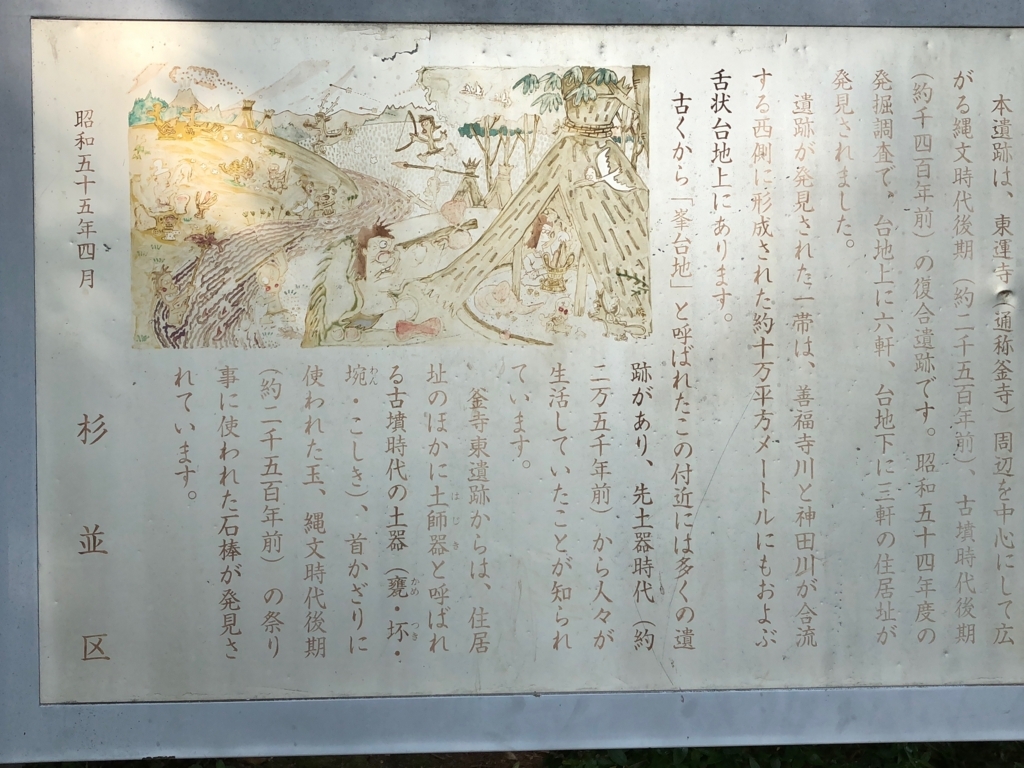 本遺跡は、東運寺(通称釜寺)周辺を中心にして広
がる縄文時代後期(約二千五百年前)、古墳時代後期
(約千四百年前)の復合遺跡です。昭和五十四年度の
発掘調査で、台地上に六軒、台地下に三軒の住居址が
発見されました。
遺跡が発見された一帯は、善福寺川と神田川が合流
する西側に形成された約十万平方メートルにもおよぶ
舌状台地上にあります。
古くから「峯台地」と呼ばれたこの付近には多くの遺
跡があり、先土器時代(約
二万五千年前)から人々が
生活していたことが知られ
ています。
釜寺東遺跡からは、住居
址のほかに土師器と呼ばれ
はじき
る古墳時代の土器(甕・坏・
かめ つき
埦・こしき)、首かざりに
わん
使われた玉、縄文時代後期
(約二千五百年前)の祭り
事に使われた石棒が発見さ
れています。
昭和五十五年四月
杉並区